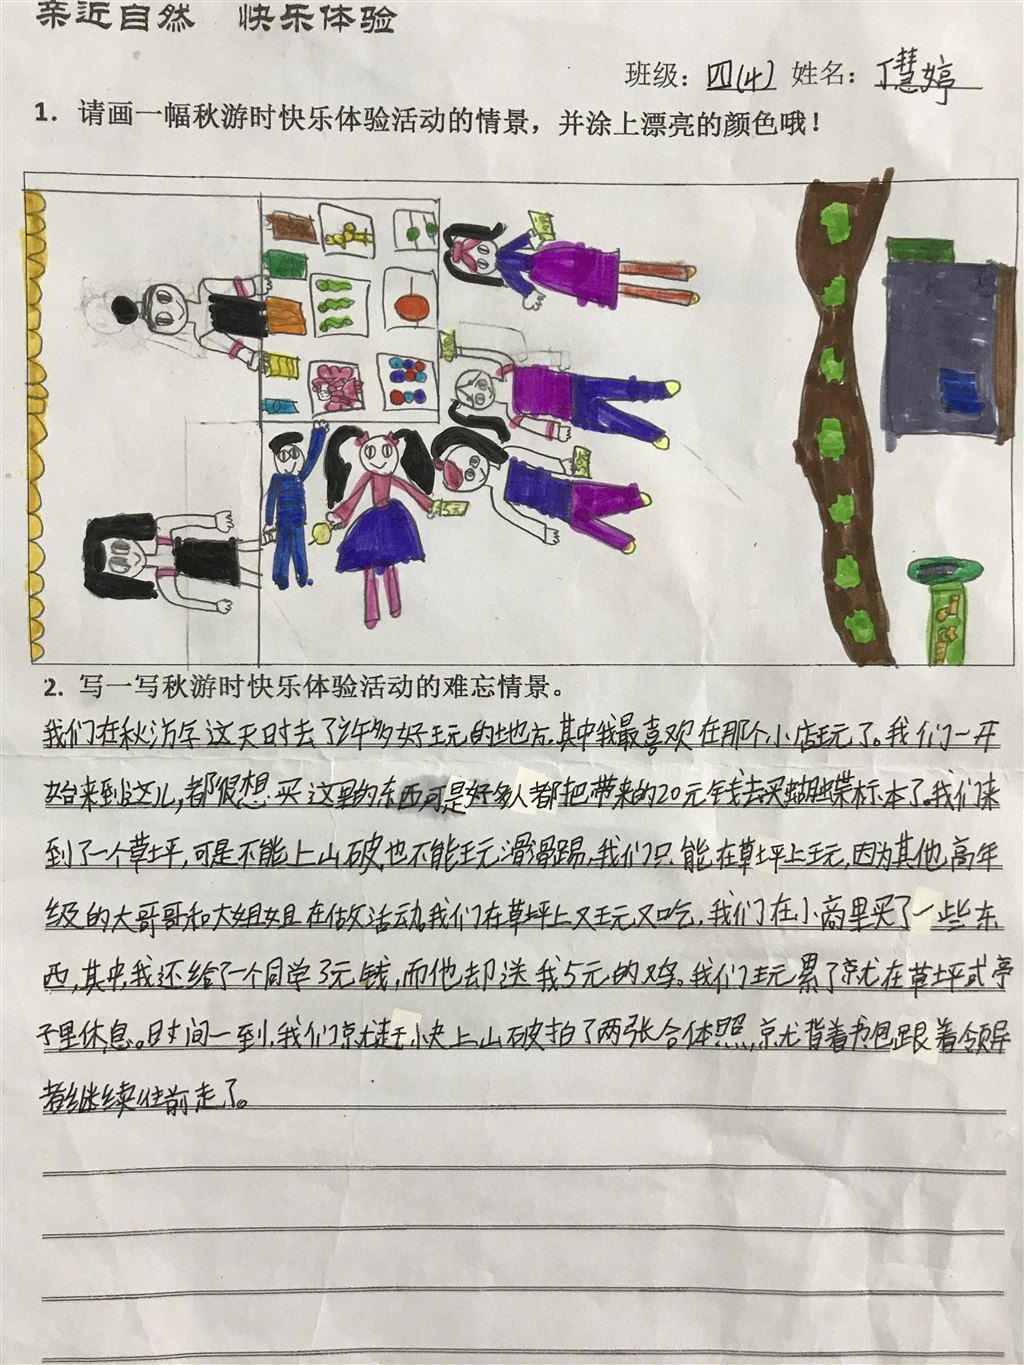 亲近自然 快乐体验
班级：四(4) 姓名：丁慧婷
1. 请画一幅秋游时快乐体验活动的情景，并涂上漂亮的颜色哦！
5元
2. 写一写秋游时快乐体验活动的难忘情景。
我们在秋游字这天时去了许多好玩的地方,其中我最喜欢在那个小店玩了。我们一开
始来到这儿,都很想买这里的东西可是好多人都把带来的20元钱去买蝴蝶标本了。我们来
到了一个草坪,可是不能上山破,也不能玩滑滑踢,我们只能在草坪上玩,因为其他高年
级的大哥哥和大姐姐在做活动,我们在草坪上又玩又吃,我们在小商里买了一些东
西,其中,我还给了一个同学3元钱,而他却送我5元的鸡。我们玩累了就在草坪式亭
子里休息。时间一到,我们就赶快上山破拍了两张合体照,就背着书包跟着领导
者继续往前走了。